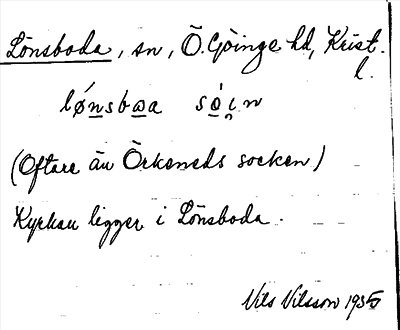 Lönsboda, sn, Ö. Göinge hd, Krist. l.
lǿnsbωa sǿi̯n
(Oftare än Örkeneds socken)
Kyrkan ligger i Lönsboda.
Nils Nilsson 1935